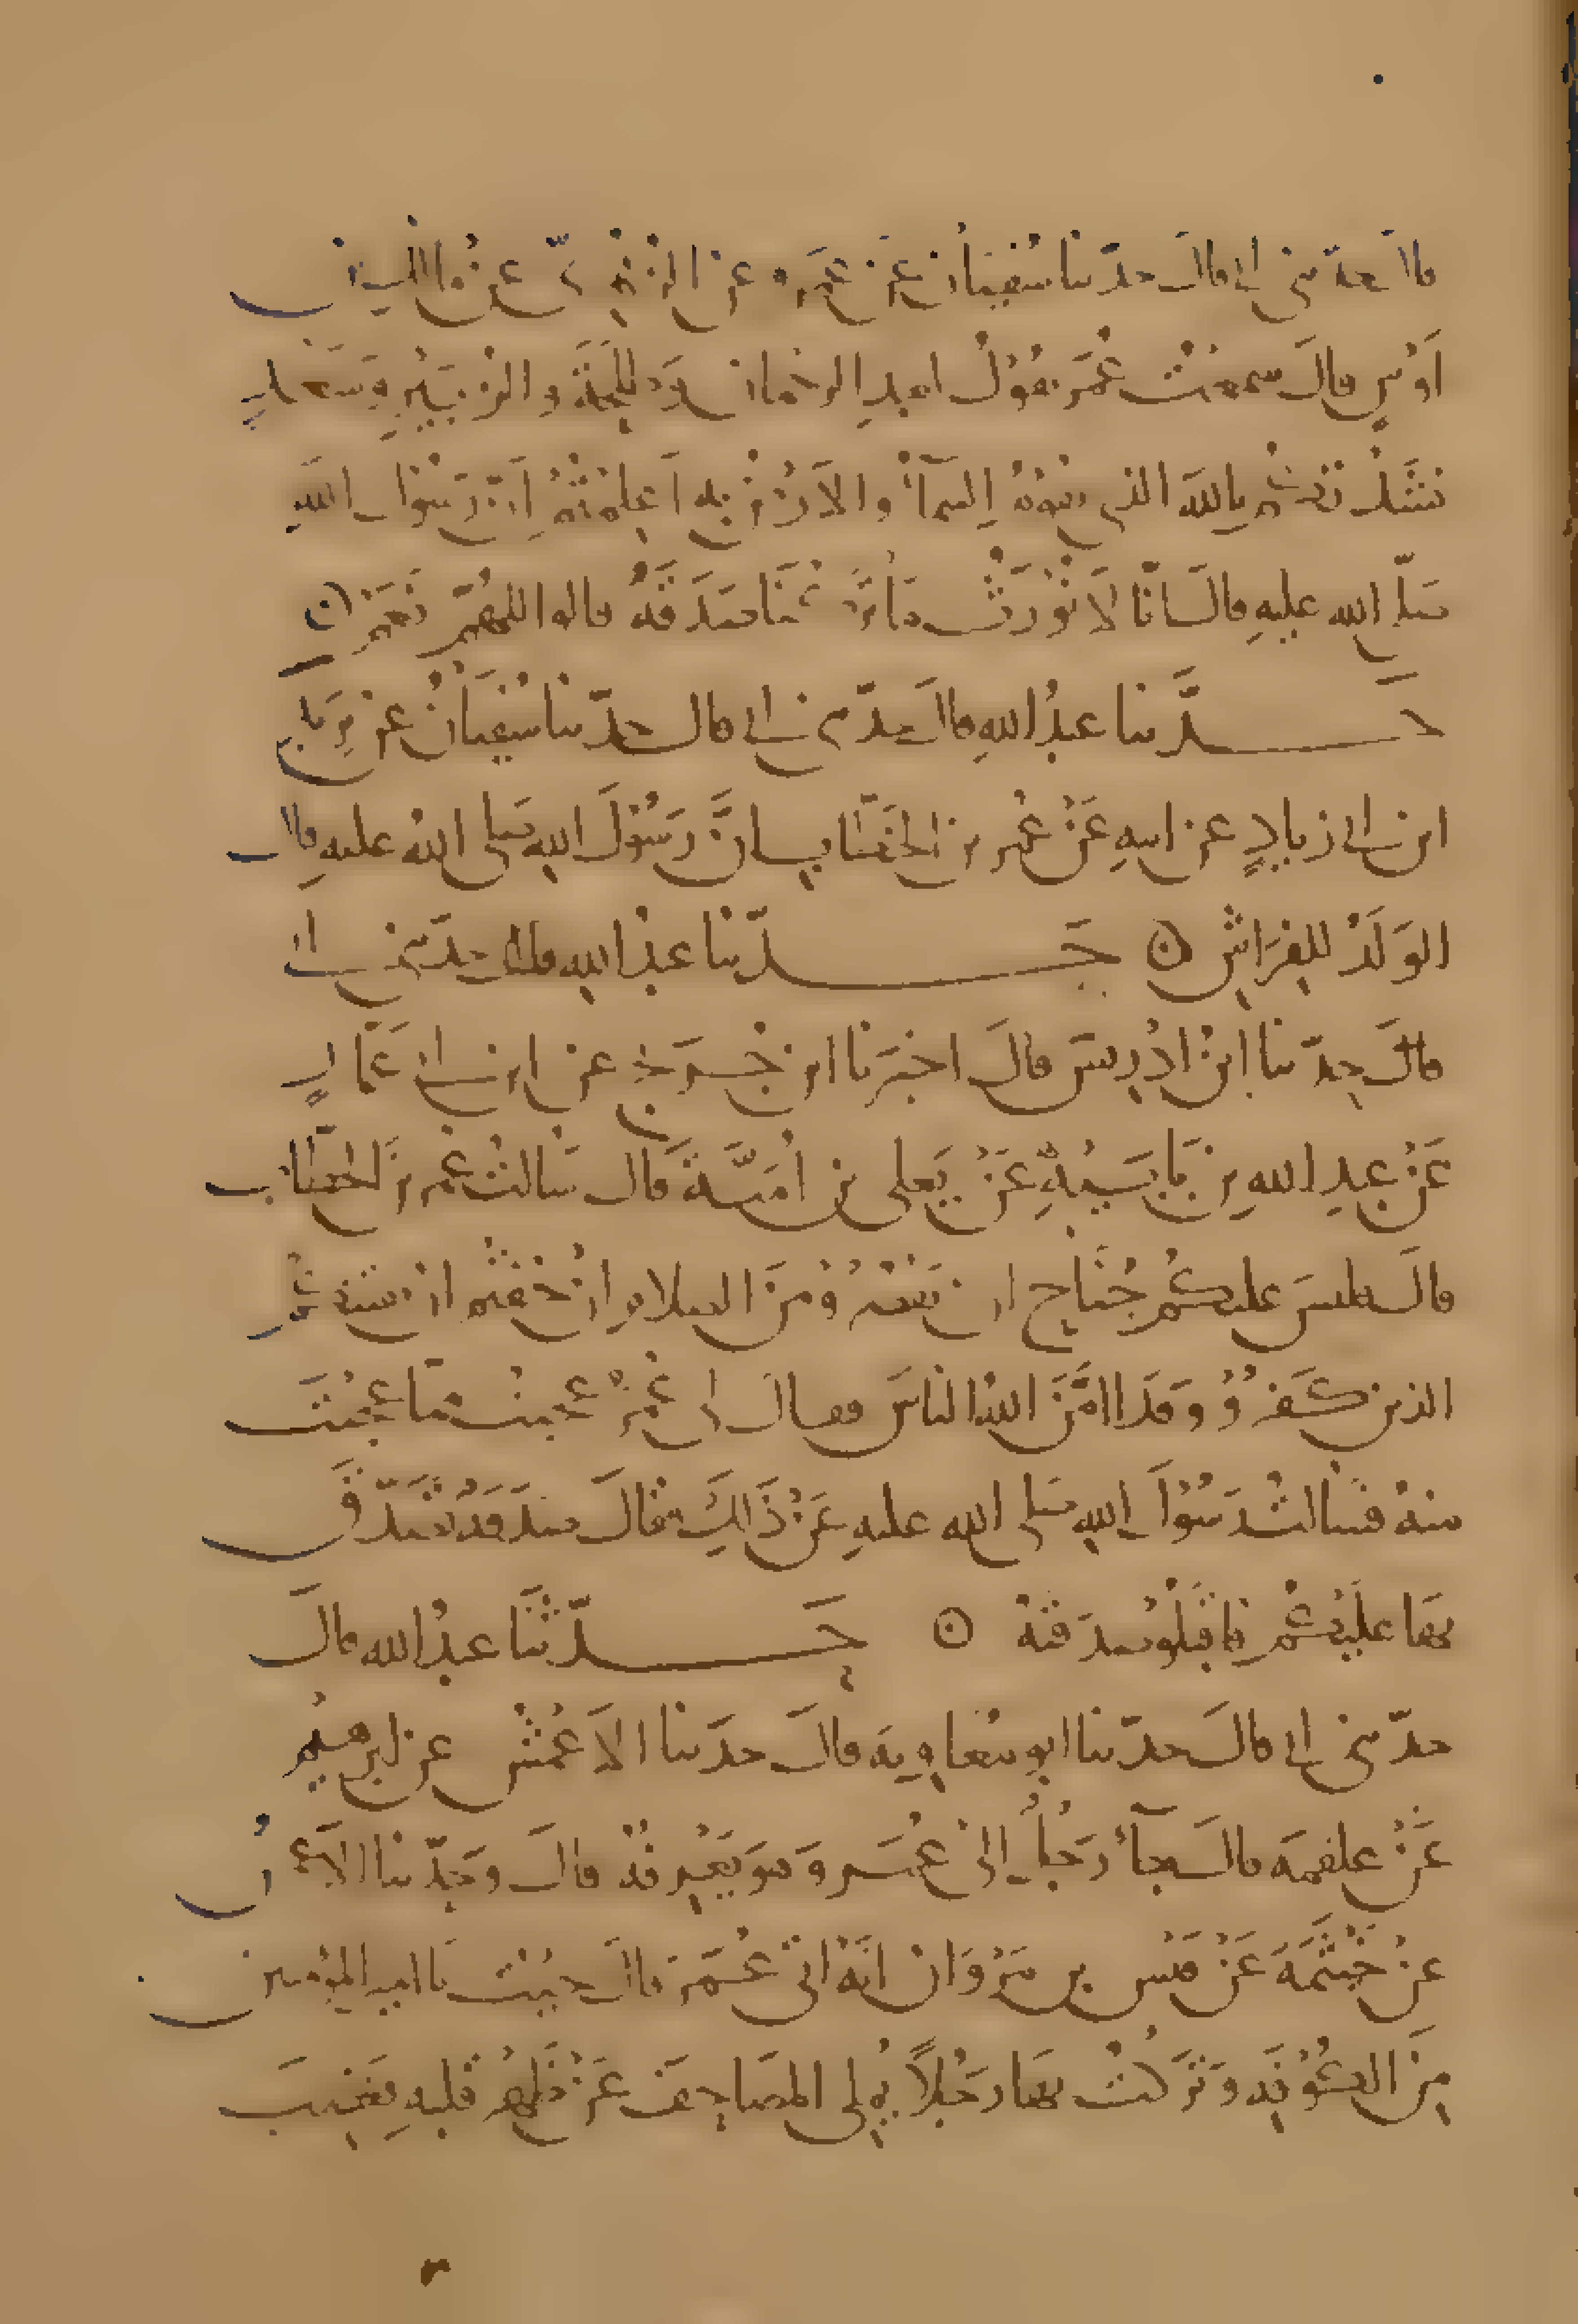 قال حدثني ابي قال حدثنا سفيان عن عمرو عن الزهري عن مالك بن
اوس قال سمعت عمر يقول لعبد الرحمان وطلحة والزبير وسعد
نشدتكم بالله الذي تقوم السماء والارض به اعلمتم ان رسول الله
صلى الله عليه قال انا لا نورث ما تركنا صدقة قالوا اللهم نعم
حدثنا عبد الله قال حدثني ابي قال حدثنا سفيان عن
ابن ابي زياد عن ابيه عن عمر بن الخطاب ان رسول الله صلى الله عليه قال
الولد للفراش حدثنا عبد الله قال حدثني ابي
قال حدثنا ابن ادريس قال اخبرنا ابن جريج عن ابن ابي عمار
عن عبد الله بن بابيه عن يعلى بن امية قال سالت عمر بن الخطاب
قال ليس عليكم جناح ان تقصروا من الصلاة ان خفتم ان يفتنكم
الذين كفروا وقد امن الله الناس فقال لي عمر عجبت مما عجبت
منه فسالت رسول الله صلى الله عليه عن ذالك فقال صدقة تصدق
بها عليكم فاقبلوا صدقته حدثنا عبد الله قال
حدثني ابي قال حدثنا ابو معاوية قال حدثنا الاعمش عن ابرهيم
عن علقمة قال جاء رجل الى عمر وهو بعرفة قال وحدثنا الاعمش
عن خيثمة عن قيس بن مروان انه اتى عمر قال جيت يا امير المؤمنين
من الكوفة وتركت بها رجلا يملي المصاحف عن ظهر قلبه فغضب